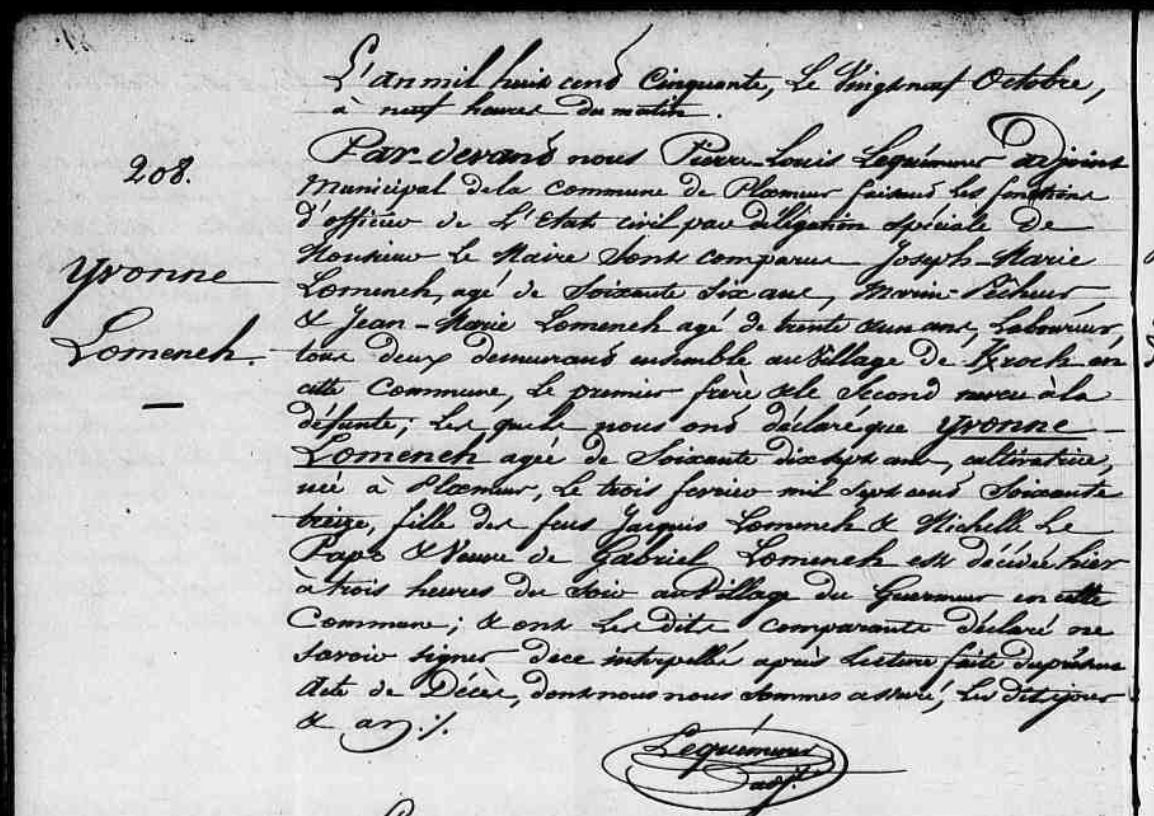 L'an mil huit cent Cinquante, Le Vingt neuf Octobre,
à neuf heures du matin.
Par-devant nous Pierre-Louis Lequémener adjoint
208.
Municipal de la Commune de Ploemeur faisant les fonctions
d'officier de L'Etat civil, par délégation spéciale de
Monsieur Le Maire Sont comparus Joseph-Marie
Yvonne
Lomench.
Lomench, agé de Soixante Six ans, Marin-Pêcheur,
& Jean-Marie Lomench agé de trente & un ans, Laboureur,
tous deux demeurant ensemble au Village de Kroch en
cette Commune, Le premier frère & le Second neveu à la
défunte; Les quels nous ont déclaré que Yvonne
Lomench agée de Soixante dix sept ans, cultivatrice,
née à Ploemeur, Le trois fevrier mil Sept cent Soixante
treize, fille des feus Jacques Lomench & Michelle Le
Pape & Veuve de Gabriel Lomench est décédée hier
à trois heures du Soir au Village du Guermeur en cette
Commune; & ont Les dits comparants déclaré ne
Savoir signer de ce interpellé après Lecture faite du présent
Acte de Décès, dont nous nous Sommes assuré, Les dits jour
& an ./.
Lequémener
adj.t